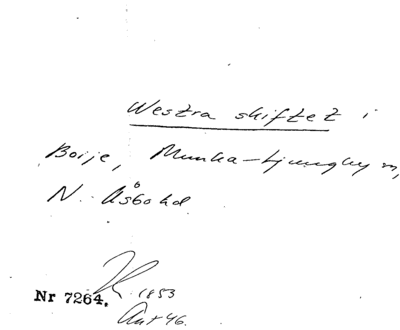 Westra skiftet i
Boije, Munka-Ljungby sn,
N. Åsbo hd
Nr 7264. 1853
Ant 46.